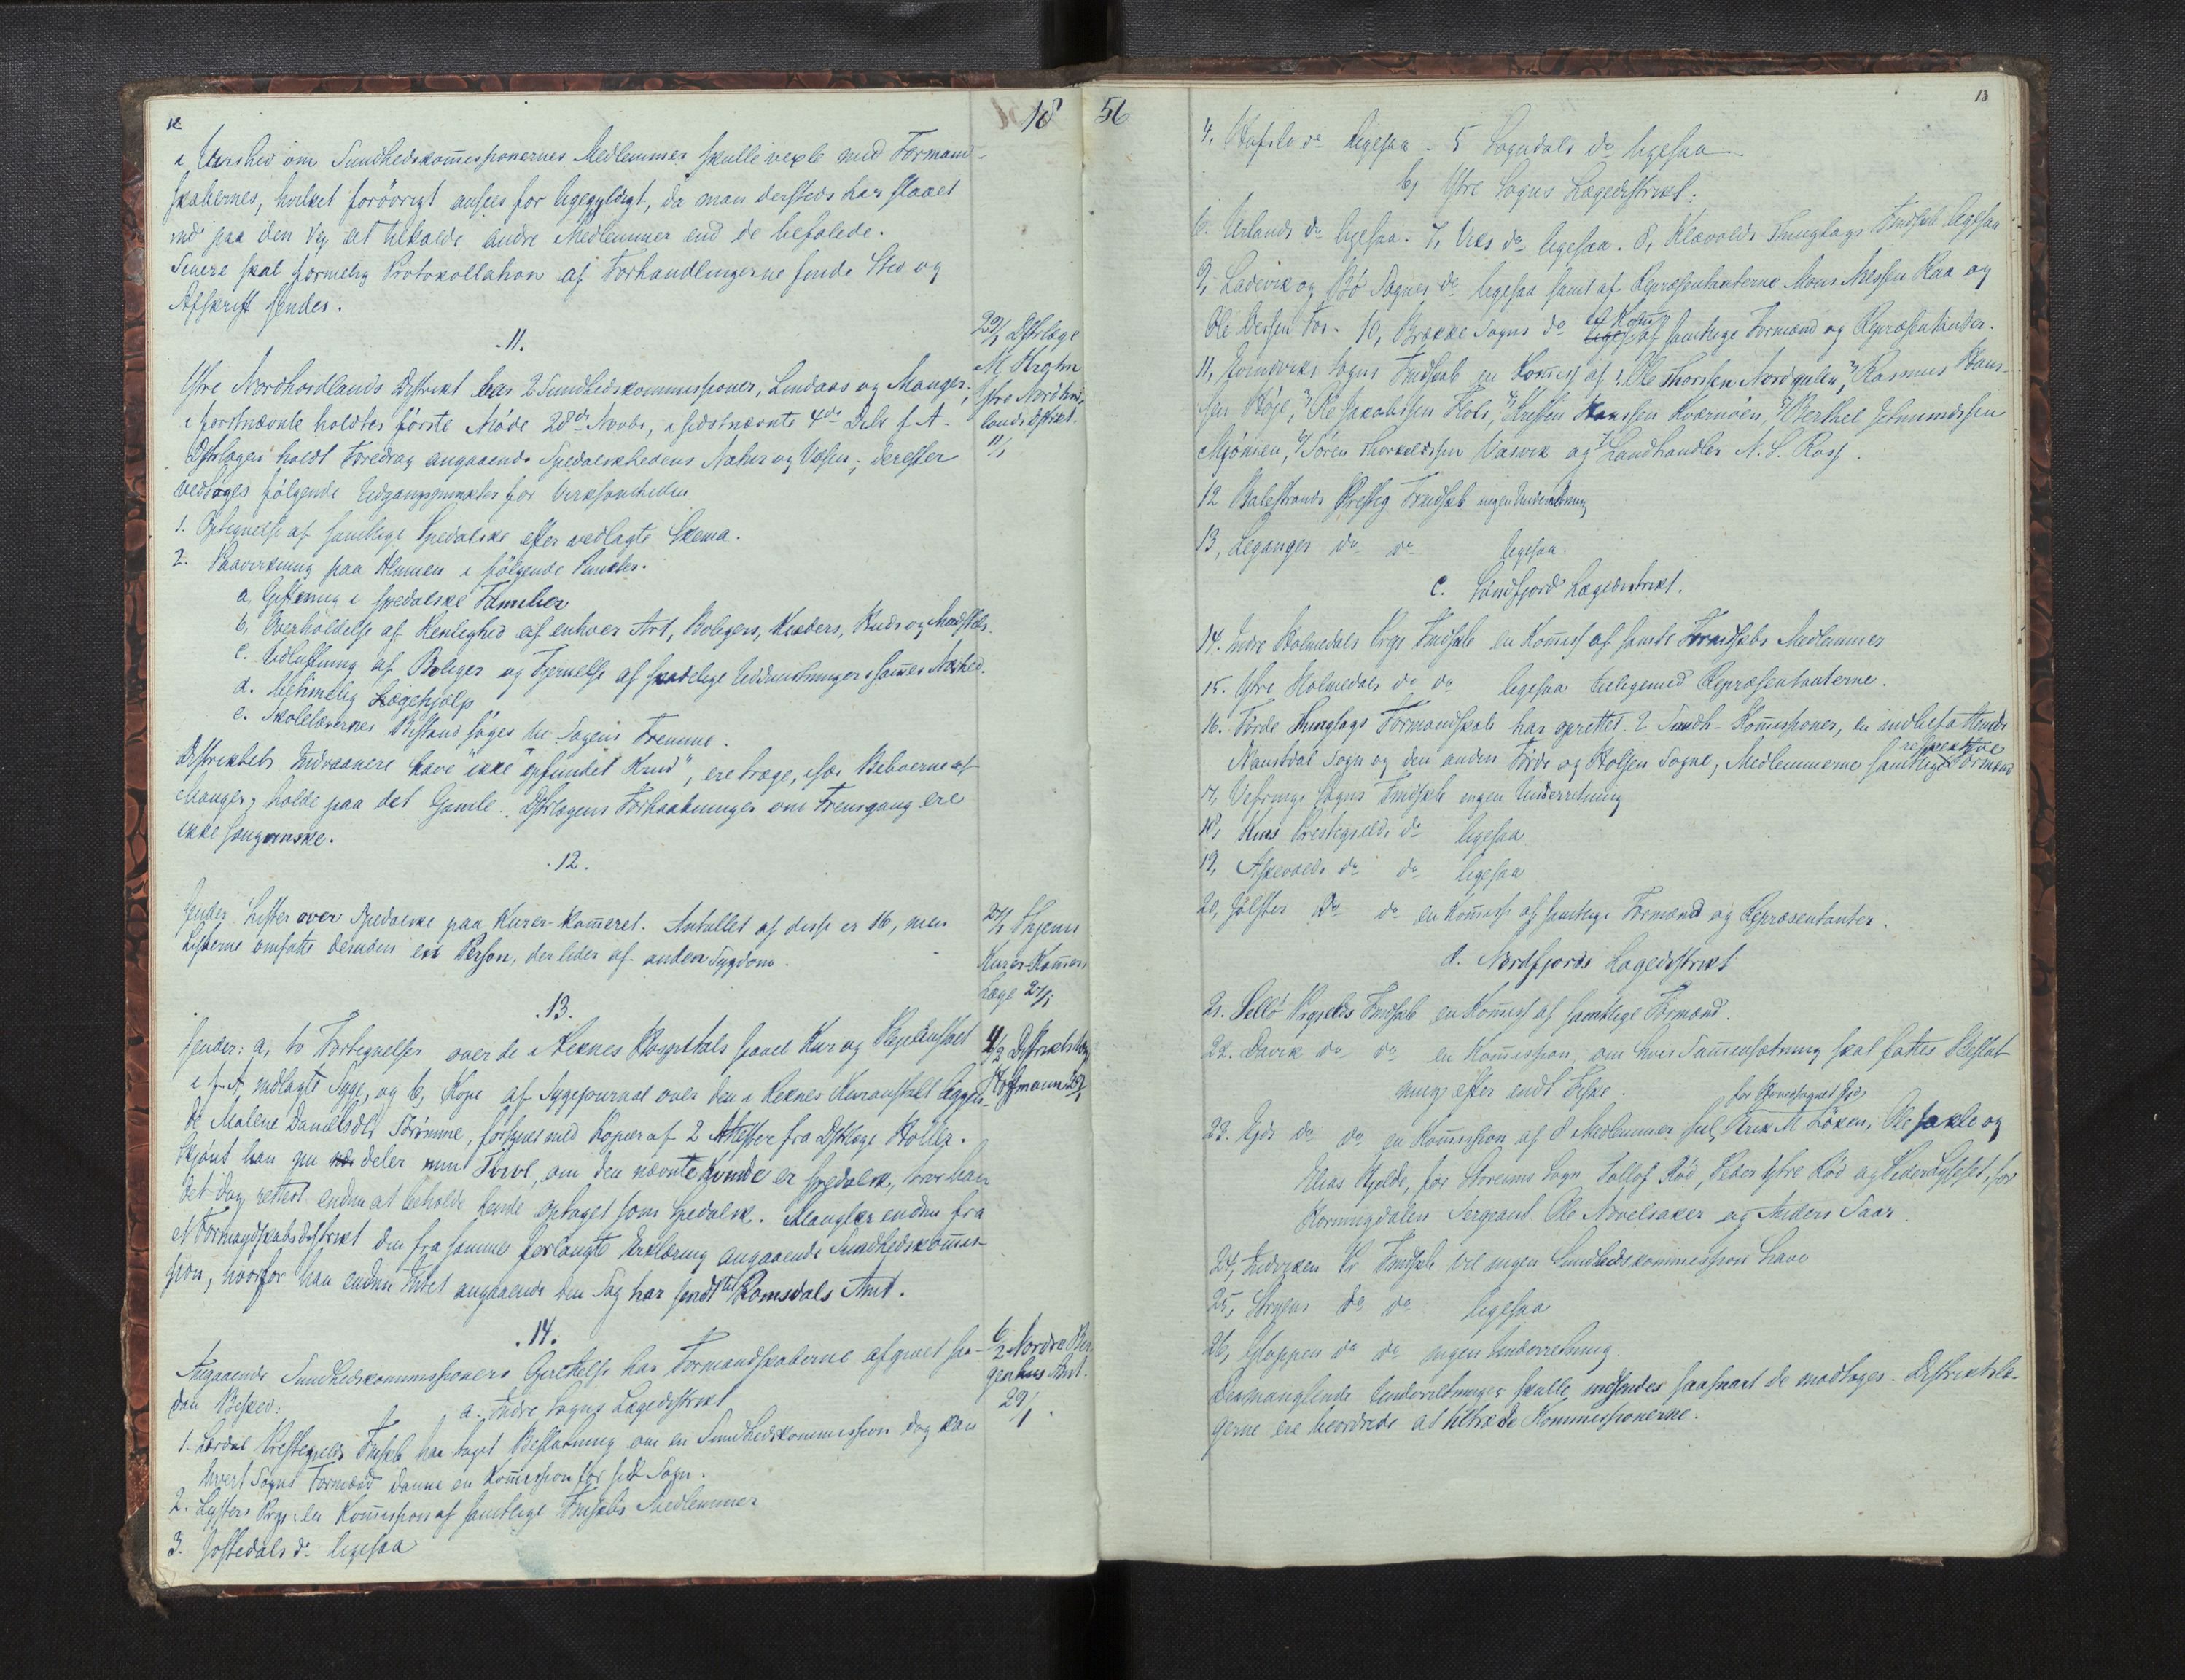 12
18
i Uvished om Sundhedskom̄issionernes Medlemmer skulle vexle med Formand-
skabernes, hvilket forövrigt ansees for ligegyldigt, da man dersteds har slaaet
ind paa den Vej at tilkalde andre Medlemmer end de befalede.
Senere skal formelig Protokollation af Forhandlingerne finde Sted og
Afskrift sendes.
.11.
Ystre Nordhordlands Distrikt har 2 Sundhedskommissioner, Lindaas og Manger,
i forstnævnte holdtes förste Möde 28de Novbr, i sidstnævnte 4de Debr f. A.
Distrlægen holdt Foredrag angaaende Spedalskhedens Natur og Væsen; derefter
vedtoges følgende Udgangspunkter for Virksomheden
1. Optegnelse af samtlige Spedalske efter vedlagte Skema.
2. Paavirkning paa Almuen i følgende Punkter.
a, Giftning i spedalske Familier
b, Overholdelse af Renlighed af enhver Art, Boligers, Klæders, Huds og Madstels.
c. Udluftning af Boliger og Fjernelse af skadelige Uddunstninger i sam̄es Nærhed.
d. betimelig Lægehjælp
e. Skolelærernes Bistand söges til Sagens Fremme.
Distriktets Indvaanere have "ikke opfundet Krud", ere træge, især Beboerne af
Manger, holde paa det Gamle. Distrlægens Forhaabninger om Fremgang ere
ikke sangvinske.
22/1 Distrlæge
M. Krohn
Ystre Nordhrd-
lands Distrikt.
11/1
.12.
Sender Lister over Spedalske paa Kurer-kam̄eret. Antallet af disse er 16, men
Listerne omfatte desuden en Person, der lider af anden Sygdom.
27/1 Skjem
Kurer-Kam̄ers
Læge 27/1
.13.
Sender: a, to Fortegnelser over de i Reknes Hospitals saavel Kur og Plejeanstalt
i f. A indlagte Syge, og b, Kopi af Sygejournal over den i Reknes Kuranstalt liggen-
de Malene Danielsdtr Sörömme, forsynet med Kopier af 2 Attester fra Distrlæge Holler.
Skjönt han nu deler min Tvivl, om den nævnte Kvinde er spedalsk, tror han
det dog rettest endnu at beholde hende optaget som spedalsk. Mangler endnu fra
et Formandskabsdistrikt den fra samme forlangte Erklæring angaaende Sundhedskom̄is-
sion, hvorfor han endnu Intet angaaende den Sag har sendt til Romsdals Amt.
4/2 Distriktslæge
Hoffmann 29/1
.14.
Angaaende Sundhedskommissioners Oprettelse har Formandskaberne afgivet saa-
dan Besked:
a. Indre Sogns Lægedistrikt
1. Lærdal Prestegjelds Fmskb har taget Beslutning om en Sundhedskommission dog kan
hvert Sogns Formænd danne en Kom̄ission for sit Sogn.
2. Lysters Prgj. en Kom̄ission af samtlige Fmskbs Medlemmer
3. Jostedals do ligesaa
6/2 Nordre Ber-
genhus Amt.
29/1.
56
13
4, Hafslo do ligesaa - 5 Sogndals do ligesaa
b, Ystre Sogns Lægedistrikt:
6. Urlands do ligesaa. 7, Viks do ligesaa. 8, Klævolds Thinglags Fmdskb ligesaa
9, Ladevik og Bö Sognes do ligesaa samt af Repræsentanterne Mons Nessen Kaa og
Ole Vessen Tor. 10, Brække Sogns do en Kom̄ af samtlige Formænd og Repræsentanter.
11, Evindviks Sogns Fmdskab en Kom̄iss af: Ole Thorsen Nordgulen, Rasmus Hans-
sen Höje, Ole Jakobssen Flols, Kristen Hanssen Kværnöen, Berthel Johannessen
Mjömen, Sören Thorkeldssen Vasvik og Landhandler N. S. Ross.
12 Balestrands Prestegj Fmdskb ingen Underretning
13, Leganger do do ligesaa.
c. Söndfjord Lægedistrikt.
14. Indre Holmedals Prgj Fmdskb en Kom̄iss af samtl Formdskbs Medlemmer
15. Ystre Holmedals do do ligesaa tilligemed Repræsentanterne.
16. Förde Thinglags Formandskab har oprettet 2 Sundh-Kom̄issioner, en indbefattende
Naustdal Sogn og den anden Förde og Holsen Sogne, Medlemmerne samtlige respektive Formænd
17, Vefrings Sogns Fmdskb ingen Underretning
18, Kins Prestegjælds do ligesaa
19, Askevolds do do ligesaa
20, Jölster do do en Kom̄iss af samtlige Formænd og Repræsentanter.
d. Nordfjords Lægedistrikt
21. Sellö Prgjelds Fmdskb en Kom̄iss af samtlige Formænd.
22. Davik do do en Kom̄ission, om hvis Sam̄ensætning skal fattes Beslut
ning efter endt Fiske.
23. Ejds do do en Kom̄ission af 8 Medlemmer for Hovedsognet Ejds Erik M Löken, Ole Sakle og
Elias Hjelde, for Storeims Sogn Tollof Rød, Peder Ystre Rød og Peder Lyslset, for
Horningdalen Sergeant Ole Navelsaker og Anders Taar.
24, Indviken Pr Fmdskb vil ingen Sundhedskommission have
25, Stryens do do ligesaa
26, Gloppen do do ingen Underretning.
De manglende Underretninger skulle indsendes saasnart de modtages. Distriktslæ-
gerne ere beordrede at tiltræde Kommissionerne.